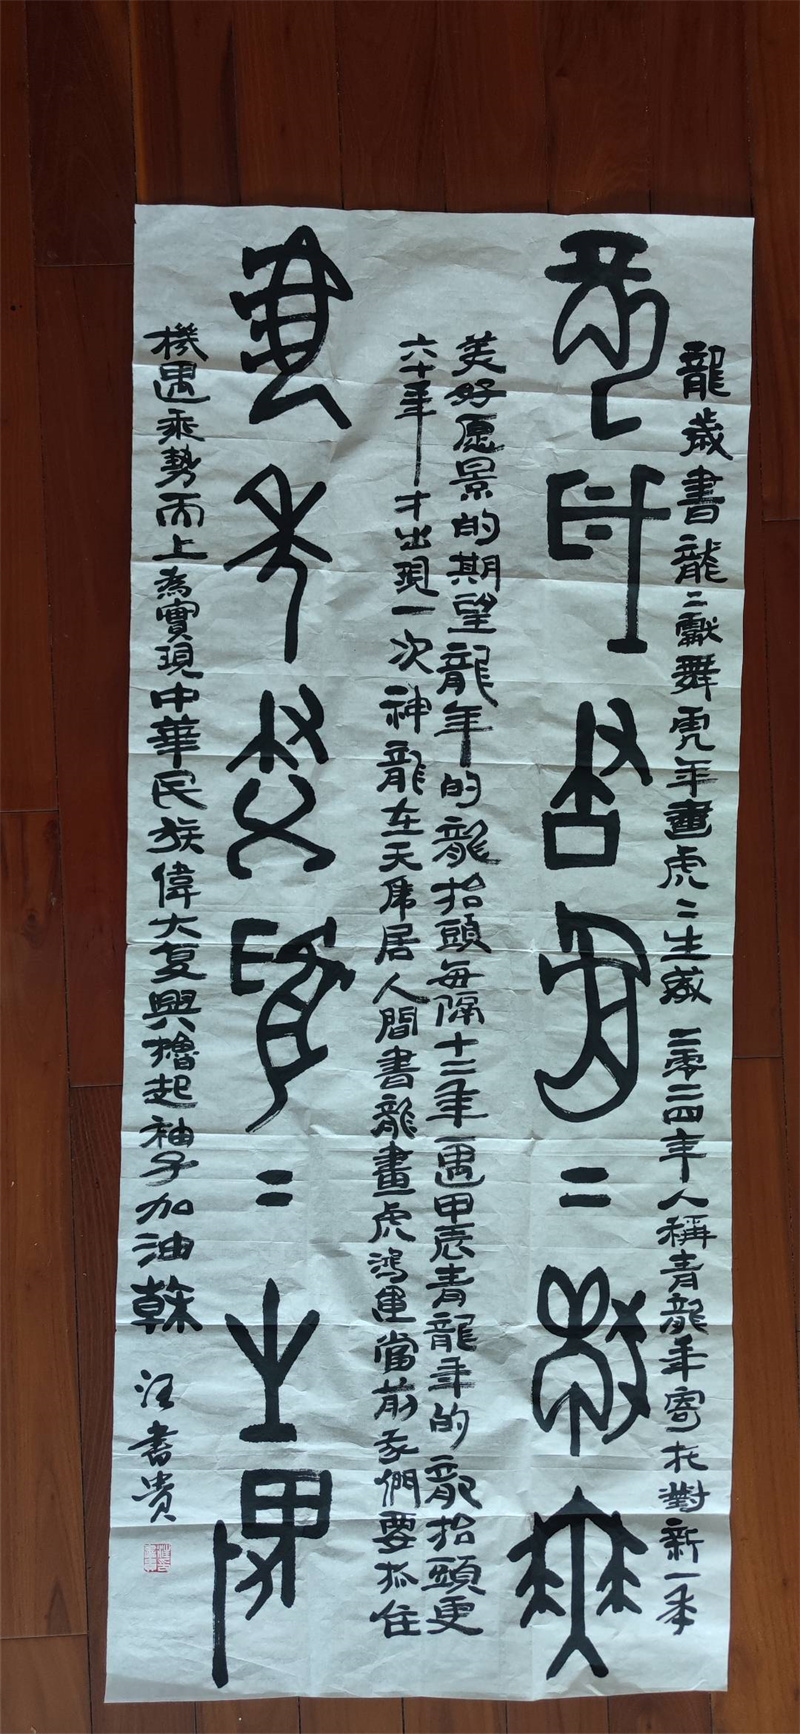 龍歲書龍二獻舞虎年畫虎二生威 二零二四年人稱青龍年寄托對新一年
龍歲書龍二獻舞
美好愿景的期望龍年的龍抬頭每隔十二年一遇甲辰青龍年的龍抬頭更
六十年才出現一次神龍在天虎居人間書龍畫虎鴻運當前我們要抓住
虎年畫虎二生威
機遇乘勢而上為實現中華民族偉大复興擼起袖子加油幹 汪書貴